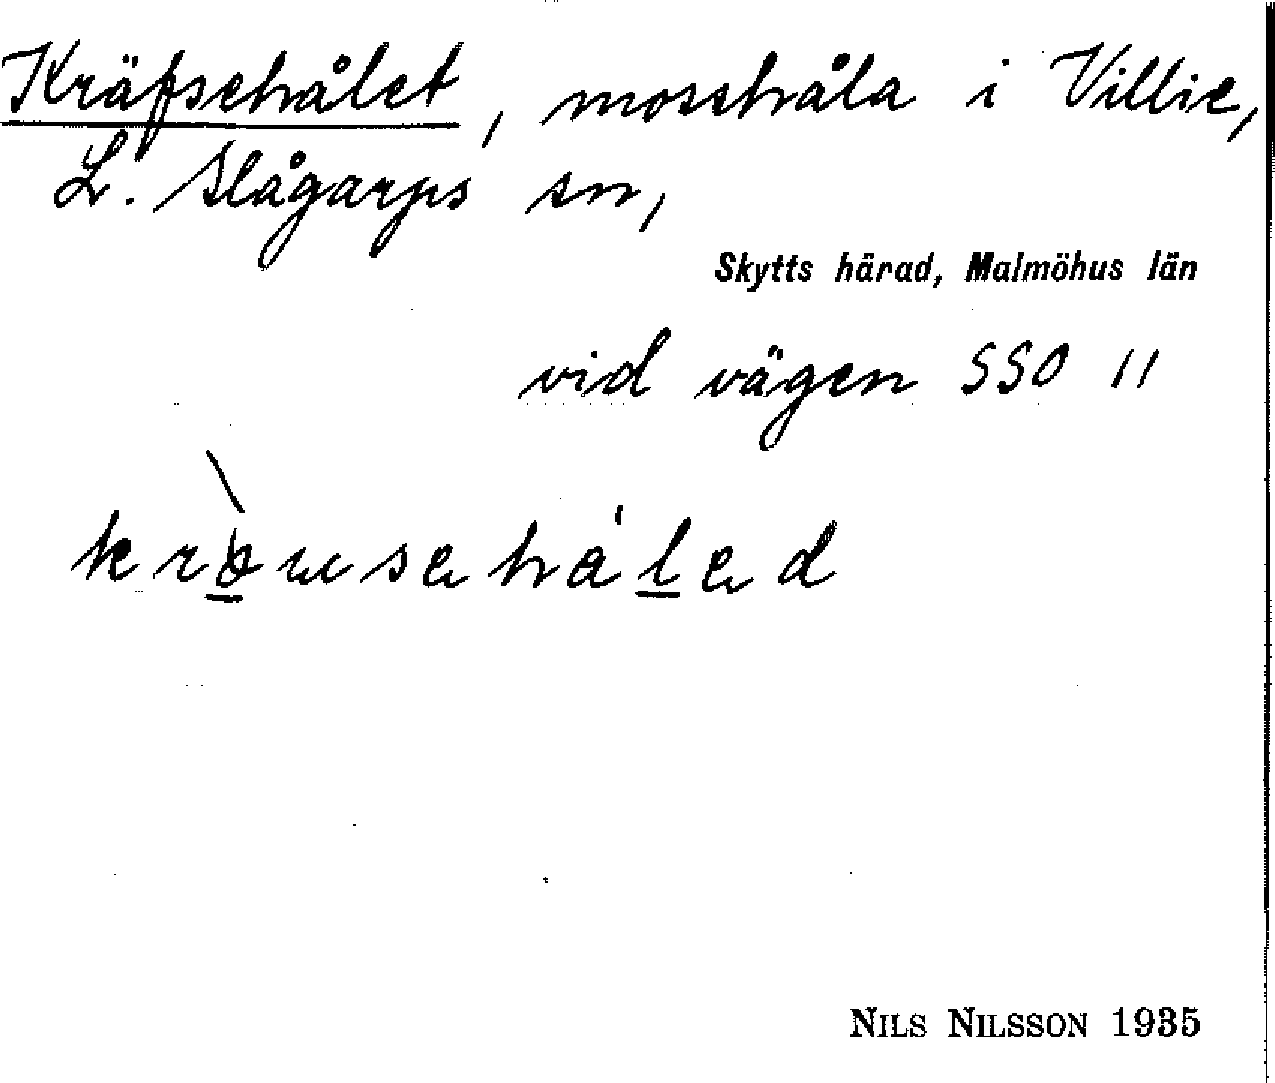 Kräfsehålet, mossehåla i Villie,
L. Slågarps sn,
Skytts härad, Malmöhus län
vid vägen SSO 11
NILS NILSSON 1935